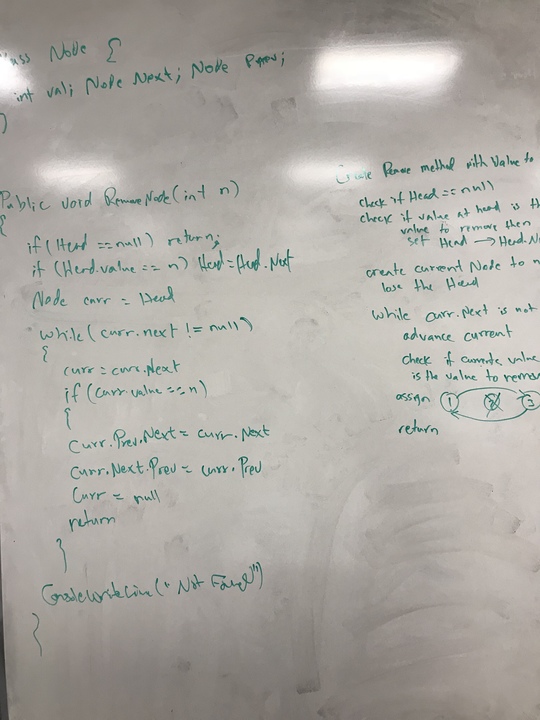 Class Node {
int val; Node Next; Node Prev;
}
Public void RemoveNode(int n)
{
if(Head == null) return;
if (Head.value == n) Head = Head.Next
Node curr = Head
while(curr.next != null)
{
curr = curr.Next
if (curr.value == n)
{
Curr.Prev.Next = curr.Next
Curr.Next.Prev = curr.Prev
Curr = null
return
}
("Not Found")
}
Create Remove method with Value to
check if Head == null
check if value at head is th
value to remove then
set Head → Head.N
create current Node to n
lose the Head
while curr.Next is not
advance current
check if current value
is the value to remov
assign 1 2 3
return